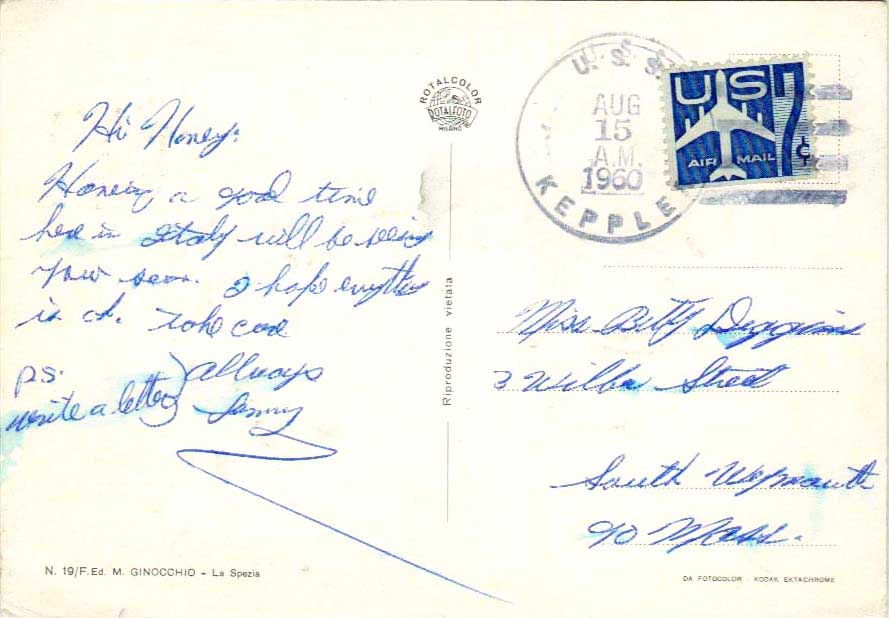 Hi Honey:
Haveing a good time
here in Italy will be seeing
you soon. I hope everything
is ok. Take care
Allways
P.S.
write a letter
ROTALCOLOR
ROTALFOTO
MILANO
Riproduzione vietata
N. 19/F. Ed. M. GINOCCHIO - La Spezia
U.S.S.
AUG
15
A.M.
1960
KEPPLE
US 7¢
AIR MAIL
Miss Betty
3 Street
South Weymouth
90 Mass.
DA FOTOCOLOR - KODAK EKTACHROME